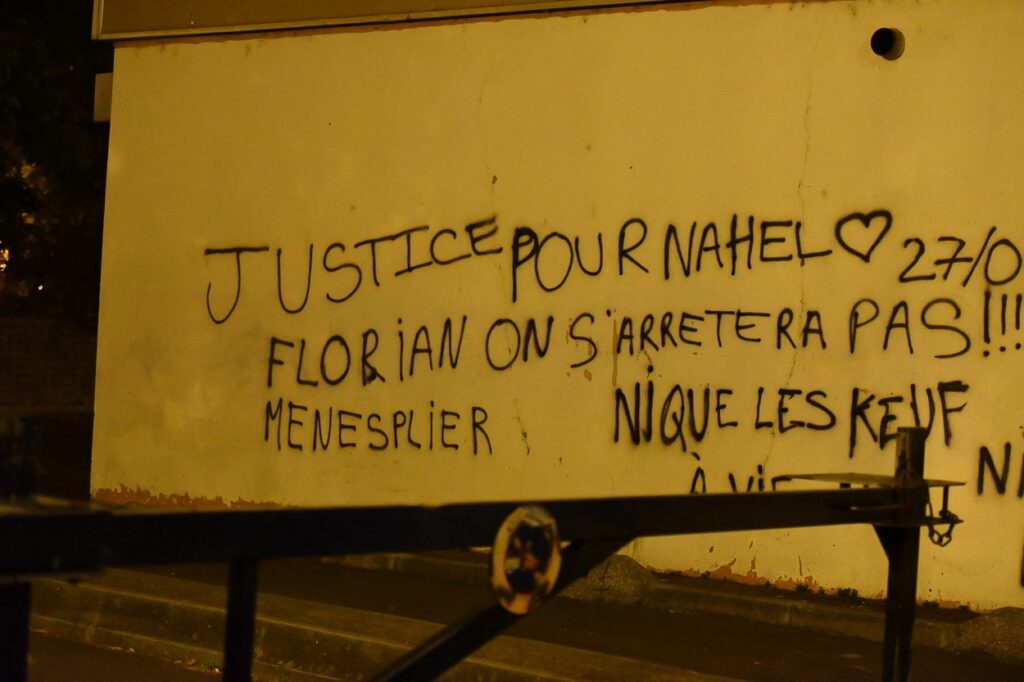 JUSTICE POUR NAHEL♡ 27/0
FLORIAN ON S'ARRETERA PAS!!!
MENESPLIER
NIQUE LES KEUF
À VIE